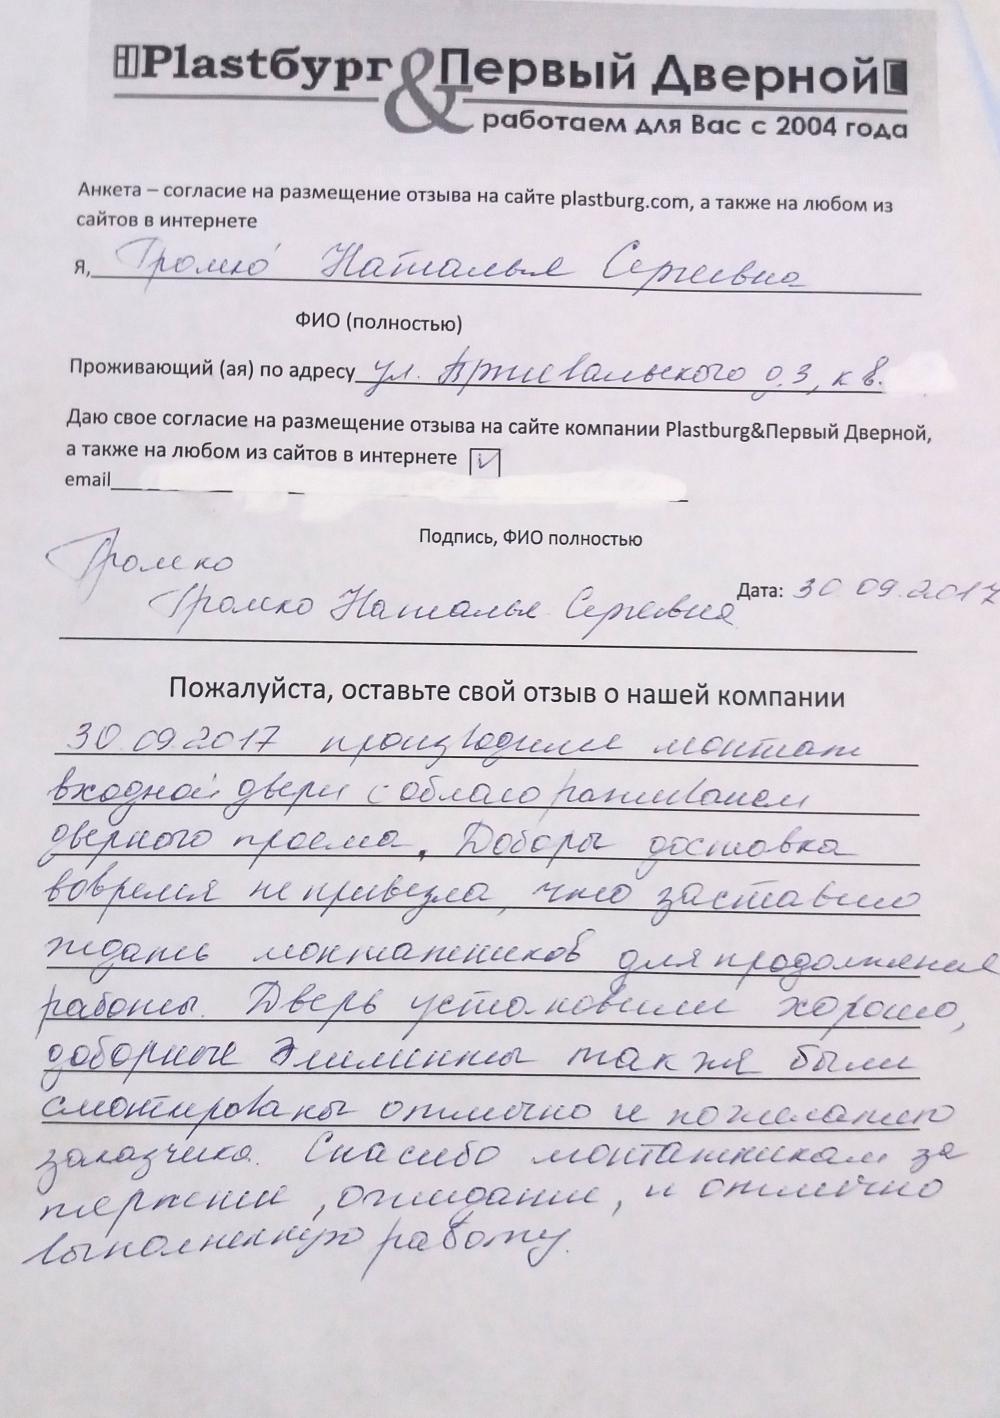 Plastбург & Первый Дверной
работаем для Вас с 2004 года
Анкета – согласие на размещение отзыва на сайте plastburg.com, а также на любом из
сайтов в интернете
Я, Громко Наталья Сергеевна
ФИО (полностью)
Проживающий (ая) по адресу ул. Пржевальского д. 3, кв.
Даю свое согласие на размещение отзыва на сайте компании Plastburg&Первый Дверной,
а также на любом из сайтов в интернете ✓
email
Подпись, ФИО полностью
Громко
Дата: 30.09.2017
Громко Наталья Сергеевна
Пожалуйста, оставьте свой отзыв о нашей компании
30.09.2017 производили монтаж
входной двери с облагораживанием
дверного проема. Доборы доставка
вовремя не привезла, что заставило
ждать монтажников для продолжения
работы. Дверь установили хорошо,
доборные элименты так же были
смонтированы отлично и по желанию
заказчика. Спасибо монтажникам за
терпение, ожидание, и отлично
выполненную работу.